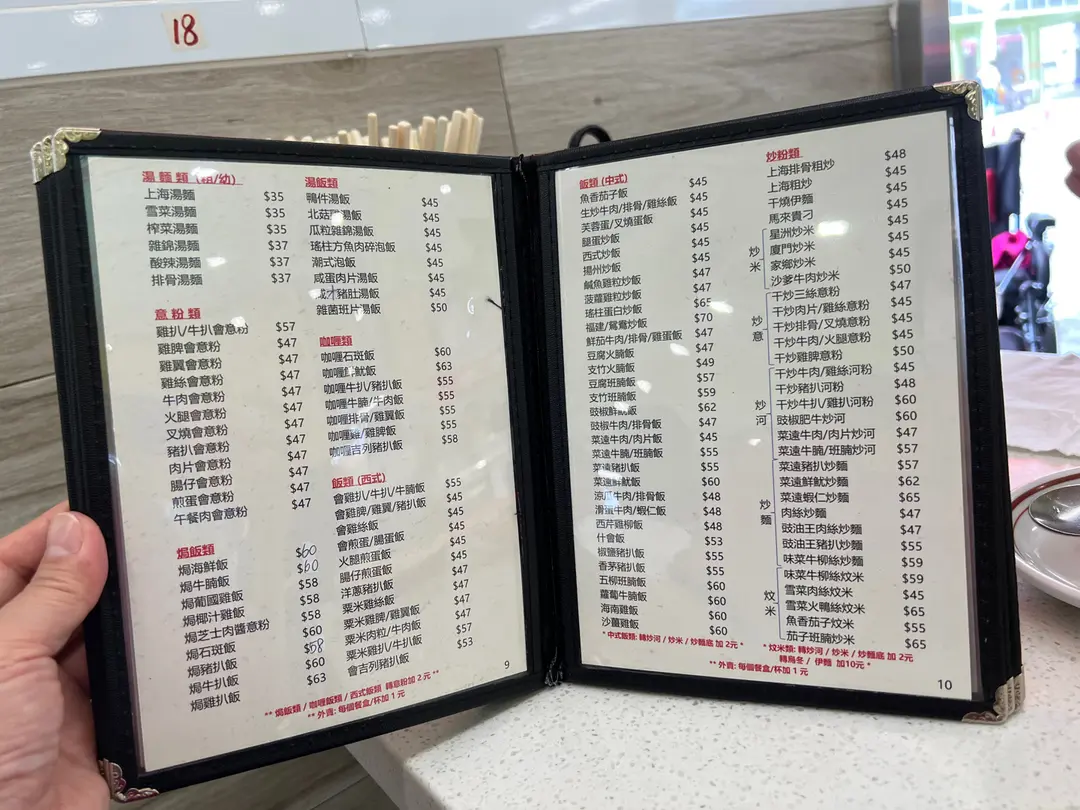 18
湯麵類 (粗/幼)
上海湯麵 $35
雪菜湯麵 $35
榨菜湯麵 $35
雜錦湯麵 $37
酸辣湯麵 $37
排骨湯麵 $37
意粉類
雞扒/牛扒會意粉 $57
雞脾會意粉 $47
雞翼會意粉 $47
雞絲會意粉 $47
牛肉會意粉 $47
火腿會意粉 $47
叉燒會意粉 $47
豬扒會意粉 $47
肉片會意粉 $47
腸仔會意粉 $47
煎蛋會意粉 $47
午餐肉會意粉 $47
焗飯類
焗海鮮飯 $60
焗牛腩飯 $60
焗葡國雞飯 $58
焗椰汁雞飯 $58
焗芝士肉醬意粉 $58
焗石斑飯 $60
焗豬扒飯 $58
焗牛扒飯 $60
焗雞扒飯 $63
湯飯類
鴨件湯飯 $45
北菇湯飯 $45
瓜粒雜錦湯飯 $45
瑤柱方魚肉碎泡飯 $45
潮式泡飯 $45
咸蛋肉片湯飯 $45
咸才豬肚湯飯 $45
雜菌班片湯飯 $50
咖喱類
咖喱石斑飯 $60
咖喱鮮魷飯 $63
咖喱牛扒/豬扒飯 $55
咖喱牛腩/牛肉飯 $55
咖喱排骨/雞翼飯 $55
咖喱雞/雞脾飯 $55
咖喱吉列豬扒飯 $58
飯類 (西式)
會雞扒/牛扒/牛腩飯 $55
會雞脾/雞翼/豬扒飯 $45
會雞絲飯 $45
會煎蛋/腸蛋飯 $45
火腿煎蛋飯 $45
腸仔煎蛋飯 $45
洋蔥豬扒飯 $47
粟米雞絲飯 $47
粟米雞脾/雞翼飯 $47
粟米肉粒/牛肉飯 $47
粟米雞扒/牛扒飯 $57
會吉列豬扒飯 $53
** 焗飯類 / 咖喱飯類 / 西式飯類 轉意粉加 2 元 **
** 外賣: 每個餐盒/杯加 1 元
9
飯類 (中式)
魚香茄子飯 $45
生炒牛肉/排骨/雞絲飯 $45
芙蓉蛋/叉燒蛋飯 $45
腿蛋炒飯 $45
西式炒飯 $45
揚州炒飯 $45
鹹魚雞粒炒飯 $47
菠蘿雞粒炒飯 $47
瑤柱蛋白炒飯 $65
福建/鴛鴦炒飯 $70
鮮茄牛肉/排骨/雞蛋飯 $47
豆腐火腩飯 $47
支竹火腩飯 $49
豆腐班腩飯 $57
支竹班腩飯 $59
豉椒鮮魷飯 $62
豉椒牛肉/排骨飯 $47
菜遠牛肉/肉片飯 $45
菜遠牛腩/班腩飯 $55
菜遠豬扒飯 $55
菜遠鮮魷飯 $60
涼瓜牛肉/排骨飯 $48
滑蛋牛肉/蝦仁飯 $48
西芹雞柳飯 $48
什會飯 $53
椒鹽豬扒飯 $55
香茅豬扒飯 $55
五柳班腩飯 $60
蘿蔔牛腩飯 $60
海南雞飯 $60
沙薑雞飯 $60
* 中式飯類: 轉炒河 / 炒米 / 炒麵底 加 2元 *
炒粉類
上海排骨粗炒 $48
上海粗炒 $45
干燒伊麵 $45
馬來貴刁 $45
炒米
星洲炒米 $45
廈門炒米 $45
家鄉炒米 $45
沙爹牛肉炒米 $50
炒意
干炒三絲意粉 $47
干炒肉片/雞絲意粉 $45
干炒排骨/叉燒意粉 $45
干炒牛肉/火腿意粉 $45
干炒雞脾意粉 $50
炒河
干炒牛肉/雞絲河粉 $45
干炒豬扒河粉 $48
干炒牛扒/雞扒河粉 $60
豉椒肥牛炒河 $60
菜遠牛肉/肉片炒河 $47
菜遠牛腩/班腩炒河 $57
炒麵
菜遠豬扒炒麵 $57
菜遠鮮魷炒麵 $62
菜遠蝦仁炒麵 $65
肉絲炒麵 $47
豉油王肉絲炒麵 $47
豉油王豬扒炒麵 $55
味菜牛柳絲炒麵 $59
炆米
味菜牛柳絲炆米 $59
雪菜肉絲炆米 $45
雪菜火鴨絲炆米 $65
魚香茄子炆米 $55
茄子班腩炆米 $65
* 炆米類: 轉炒河 / 炒米 / 炒麵底 加 2元
轉烏冬 / 伊麵 加10元 *
** 外賣: 每個餐盒/杯加 1 元
10